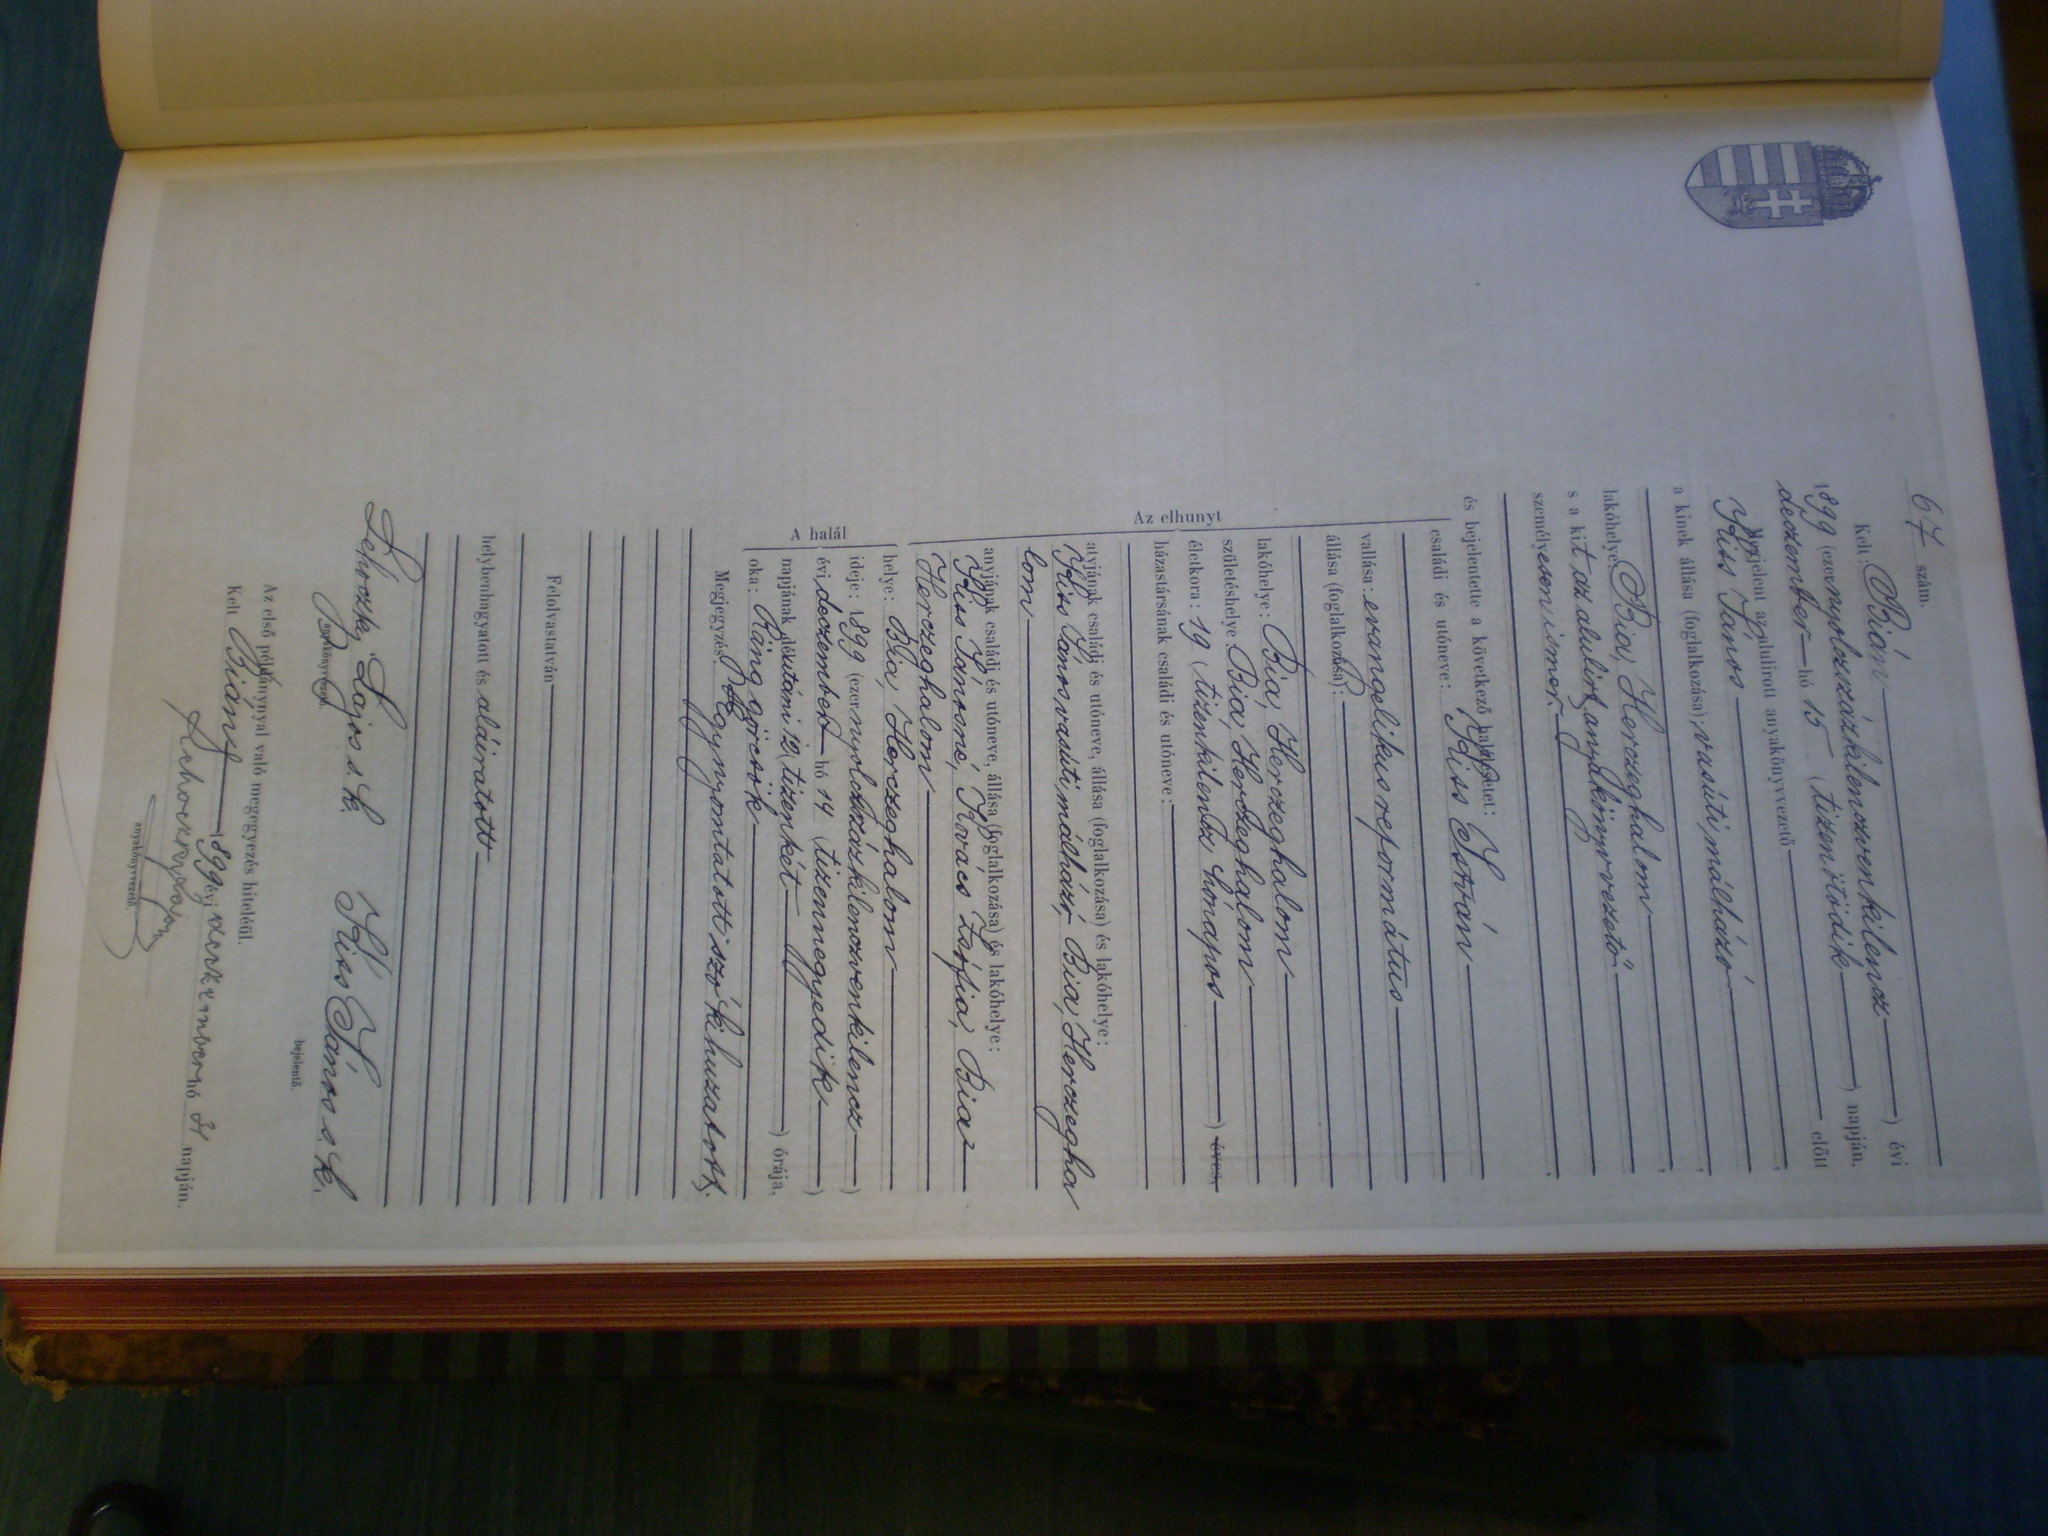 67 szám.
Kelt: Bián (ezernyolczszázkilenczvenkilencz) évi
1899 deczember hó 15 (tizenötödik) napján,
Megjelent az alulirott anyakönyvvezető előtt
Kiss János
a kinek állása (foglalkozása): vasúti málházó
lakóhelye: Bia, Herczeghalom
s a kit az alulirt anyakönyvvezető
személyesen ismer.
és bejelentette a következő halálesetet:
családi és utóneve: Kiss István
vallása: evangelikus református
állása (foglalkozása):
lakóhelye: Bia, Herczeghalom
születéshelye: Bia, Herczeghalom
életkora: 19 (tizenkilencz hónapos) éves,
házastársának családi és utóneve:
Az elhunyt
atyjának családi és utóneve, állása (foglalkozása) és lakóhelye:
Kiss János vasúti málházó, Bia, Herczegha
lom
anyjának családi és utóneve, állása (foglalkozása) és lakóhelye:
Kiss Jánosné, Kovács Zsófia, Bia,
Herczeghalom
A halál
helye: Bia, Herczeghalom
ideje: 1899 (ezernyolczszázkilenczvenkilencz)
évi deczember hó 14 (tizennegyedik)
napjának délutáni 12 (tizenkét) órája,
oka: Ráng görcsök
Megjegyzés: Egy nyomtatott szó kihuzatott.
Felolvastatván
helybenhagyatott és aláiratott
Lehoczky Lajos s. k. Kiss János s. k.
anyakönyvvezető. bejelentő.
Az első példánynyal való megegyezés hiteléül.
Kelt Bián, 1899 évi deczember hó 31 napján.
Lehoczky Lajos
anyakönyvvezető